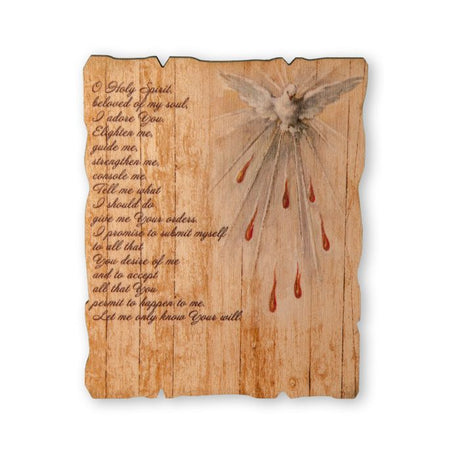 O Holy Spirit,
beloved of my soul,
I adore You.
Elighten me,
guide me,
strengthen me,
console me.
Tell me what
I should do
give me Your orders.
I promise to submit myself
to all that
You desire of me
and to accept
all that You
permit to happen to me.
Let me only know Your will.